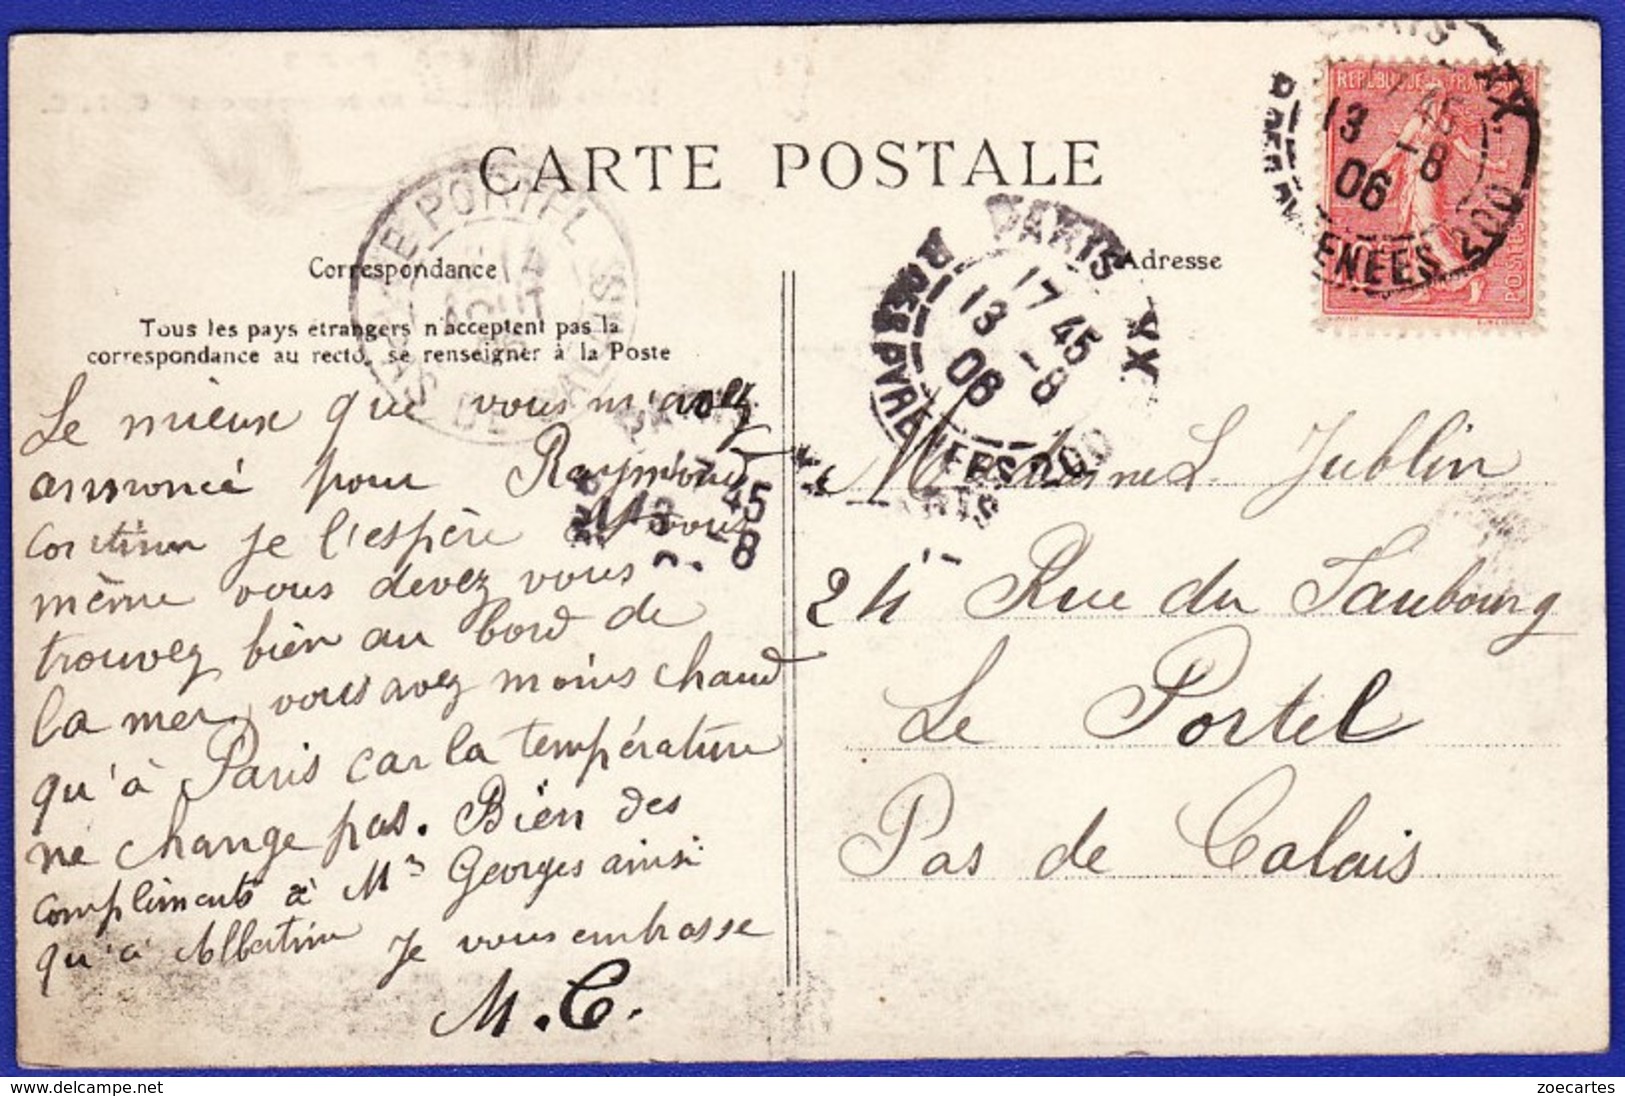 CARTE POSTALE
Correspondance
Adresse
Tous les pays étrangers n'acceptent pas la
correspondance au recto, se renseigner à la Poste
Le mieux que vous m'avez
annoncé pour Raymond
continue je l'espère vous
même vous devez vous
trouvez bien au bord de
la mer, vous avez moins chaud
qu'à Paris car la température
ne change pas. Bien des
compliments à Mr Georges ainsi
qu'à Albertine je vous embrasse
M.C.
Madame L. Jublin
24 Rue du Faubourg
Le Portel
Pas de Calais
REPUBLIQUE FRANÇAISE
POSTES
PARIS XX
13 -8
06
PYRENEES 200
PARIS XX
17 45
13 -8
06
R DES PYRENEES 200
LE PORTEL
14
AOUT
06
PAS DE CALAIS
PARIS
45
13 -8
PARIS
zoecartes
www.delcampe.net